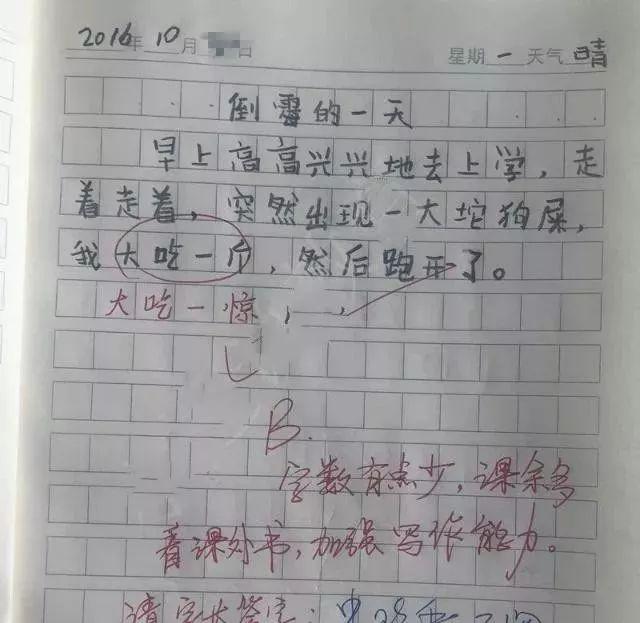 2016年10月 日 星期一 天气晴
倒霉的一天
早上高高兴兴地去上学，走
着走着，突然出现一大坨狗屎，
我大吃一斤，然后跑开了。
大吃一惊，
B.
字数有点少，课余多
看课外书，加强写作能力。
请家长签字：